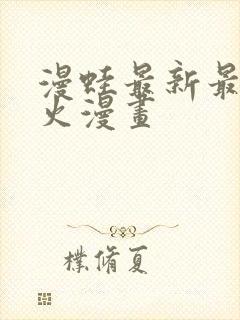 漫蛙最新最
火漫畫
樸脩夏